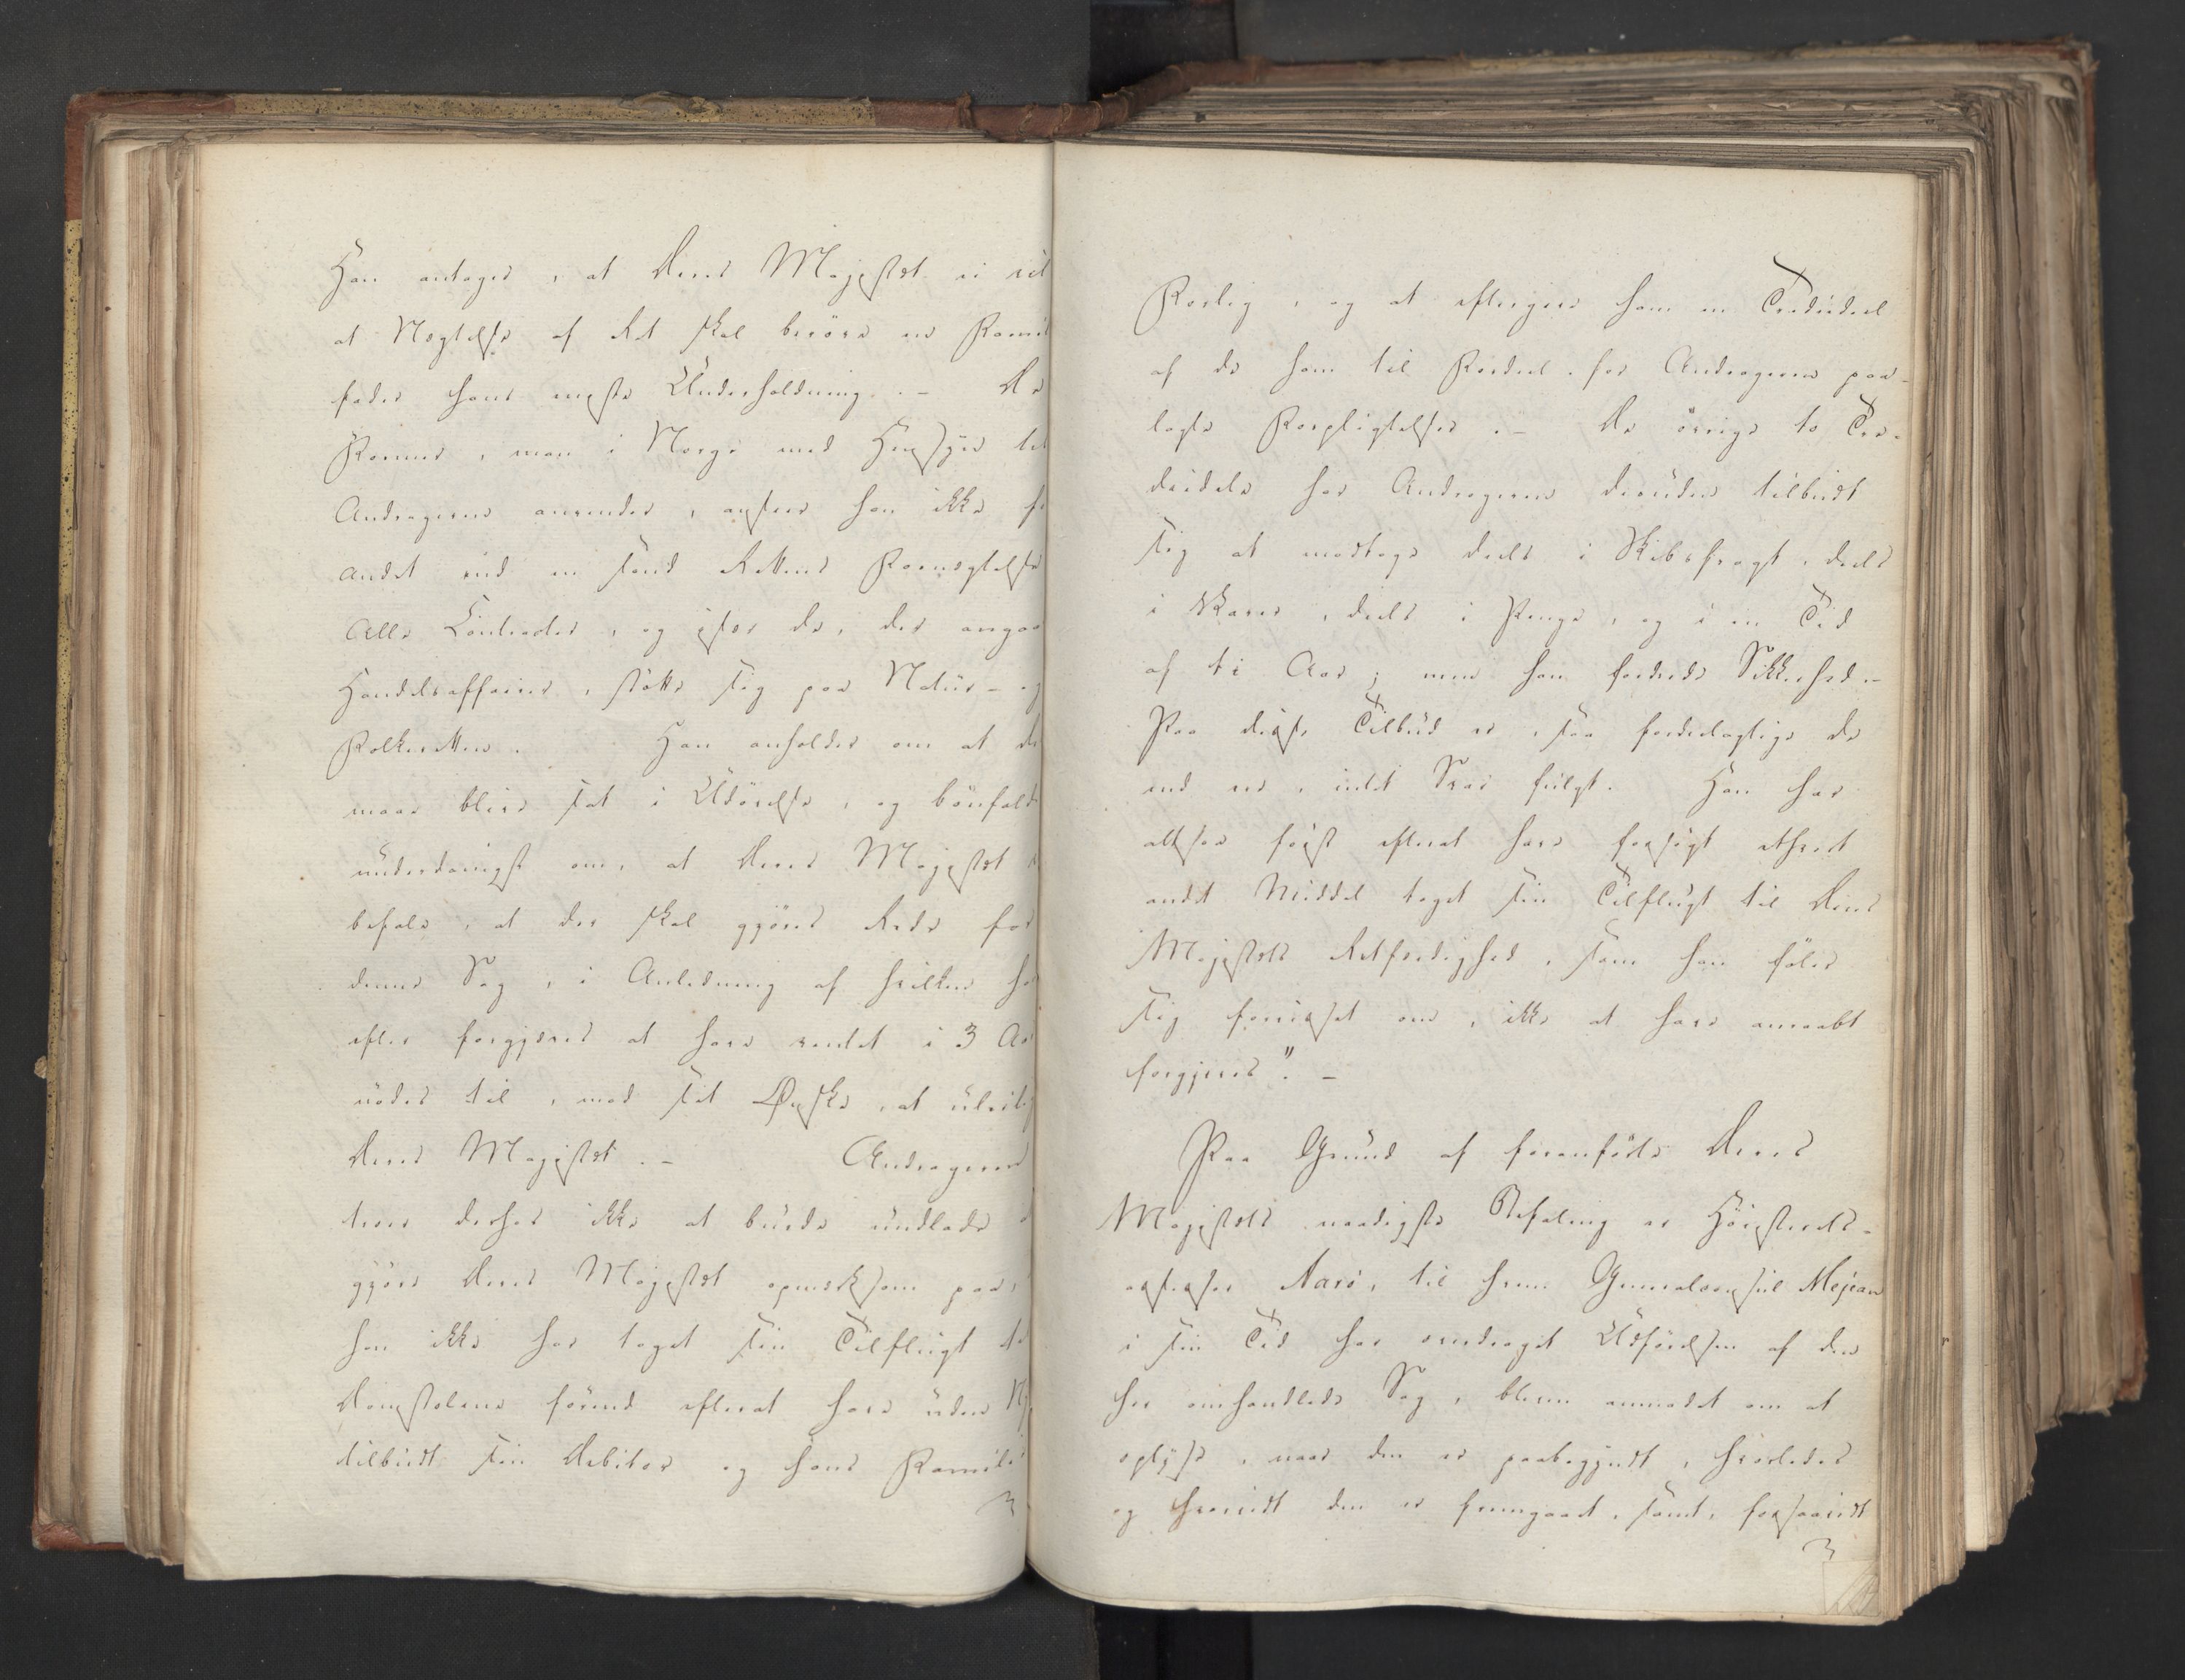 Han antager, at Deres Majestæt ei vil
at Nægtelse af Ret skal berøve en Famil
fader hans meste Underholdning. – De
Former, man i Norge med Hensyn til
Andrageren anvender, anseer han ikke fo
andet end en sand Rettens Fornægtelse
Alle Contracter, og især de, der angaa
Handelsaffairer, støtte sig paa Natur- og
Folkeretten. Han anholder om at de
maae blive sat i Udøvelse, og bønfald
underdanigst om, at Deres Majestæt
befale, at der skal gjøres Rede for
denne Sag, i Anledning af hvilken ha
efter forgjæves at have ventet i 3 Aa
nødes til, mod sit Ønske, at uleilig
Deres Majestæt. – Andrageren
troer derfor ikke at burde undlade
gjøre Deres Majestæt opmærksom paa,
han ikke har taget sin Tilflugt til
Domstolene førend efterat have uden Ny
tilbudt sin Debitor og hans Famili
Forlig, og at eftergive ham en Trediedeel
af de ham til Fordeel for Andrageren paa-
lagte Forpligtelser. – De øvrige to Tre-
diedele har Andrageren desuden tilbudt
sig at modtage deels i Skibsfragt, deels
i Varer, deels i Penge, og i en Tid
af ti Aar; men han fordrede Sikkerhed. –
Paa disse Tilbud er, saa fordeelagtige de
end ere, intet Svar fulgt. Han har
altsaa først efterat have forsøgt ethvert
andet Middel taget sin Tilflugt til Deres
Majestæts Retfærdighed, som han føler
sig forvisset om, ikke at have anraabt
forgjeves". –
Paa Grund af foranførte Deres
Majestæts naadigste Befaling er Høiesterets-
assessor Aarö, til hvem Generalconsul Mejean
i sin Tid har overdraget Udførelsen af den
her omhandlede Sag, bleven anmodet om at
oplyse, naar den er paabegyndt, hvorledes
og hvorvidt den er fremgaaet, samt, forsaavidt